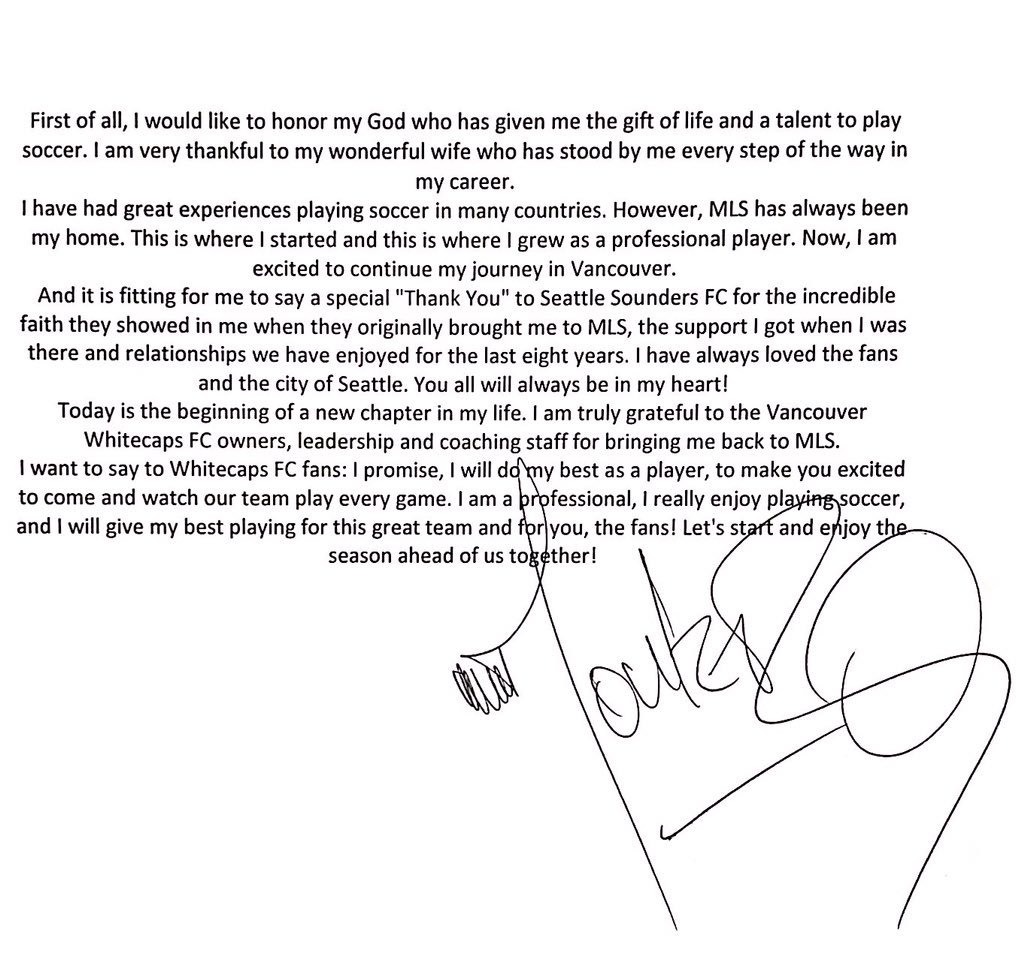 First of all, I would like to honor my God who has given me the gift of life and a talent to play
soccer. I am very thankful to my wonderful wife who has stood by me every step of the way in
my career.
I have had great experiences playing soccer in many countries. However, MLS has always been
my home. This is where I started and this is where I grew as a professional player. Now, I am
excited to continue my journey in Vancouver.
And it is fitting for me to say a special "Thank You" to Seattle Sounders FC for the incredible
faith they showed in me when they originally brought me to MLS, the support I got when I was
there and relationships we have enjoyed for the last eight years. I have always loved the fans
and the city of Seattle. You all will always be in my heart!
Today is the beginning of a new chapter in my life. I am truly grateful to the Vancouver
Whitecaps FC owners, leadership and coaching staff for bringing me back to MLS.
I want to say to Whitecaps FC fans: I promise, I will do my best as a player, to make you excited
to come and watch our team play every game. I am a professional, I really enjoy playing soccer,
and I will give my best playing for this great team and for you, the fans! Let's start and enjoy the
season ahead of us together!